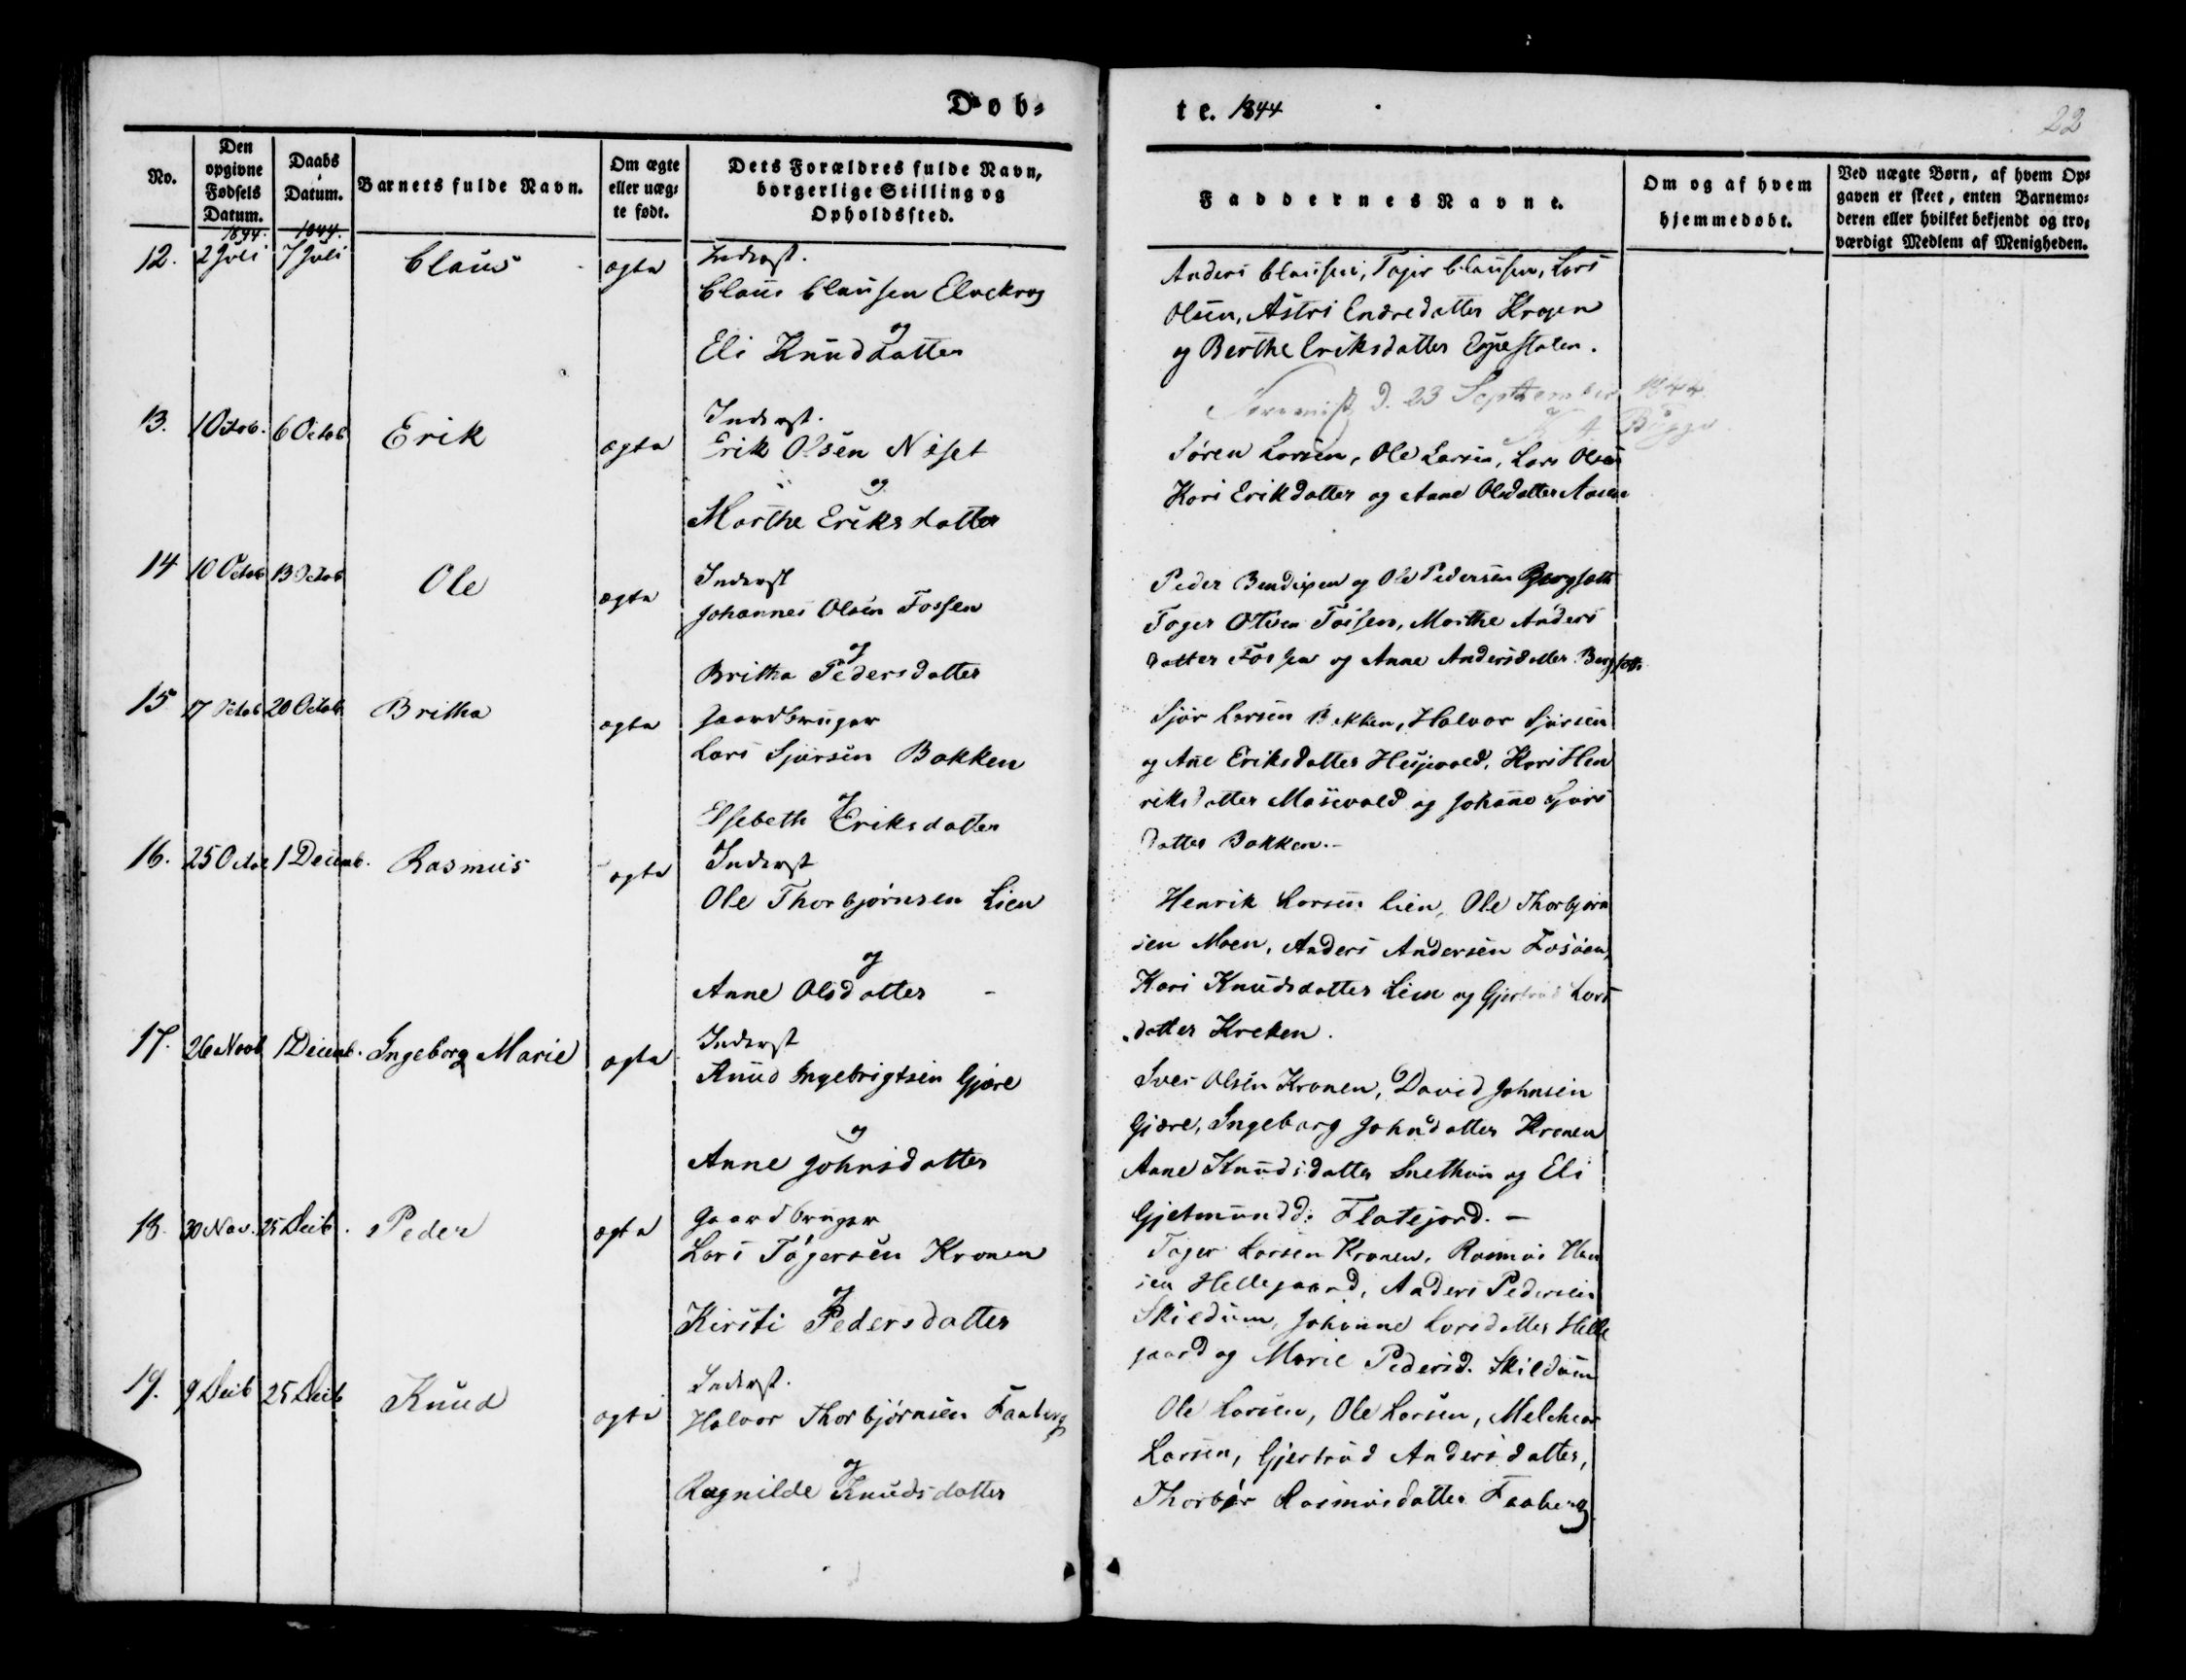 Døb-
te. 1844
22
No.
Den opgivne Fødsels Datum.
Daabs Datum.
Barnets fulde Navn.
Om ægte eller uæg-te født.
Dets Forældres fulde Navn, borgerlige Stilling og Opholdssted.
Faddernes Navne.
Om og af hvem hjemmedøbt.
Ved uægte Børn, af hvem Op-gaven er skeet, enten Barnemo-deren eller hvilket bekjendt og tro-værdigt Medlem af Menigheden.
1844. 1844.
12. 2 Juli 7 Juli Claus ægte Inderst.
Claus Clausen Elvekrog
og
Eli Knudsdatter
Anders Clausen, Tøger Clausen, Lars
Olsen, Astri Endredatter Krogen
og Berthe Eriksdatter
d. 23 September 1844
Bugge
13. 1 Octob. 6 Octob Erik ægte Inderst.
Erik Olsen Niset
og
Marthe Eriksdatter
Søren Larsen, Ole Larsen, Lars Olsen
Kari Erikdatter og Anne Olsdatter Aasen
14 10 Octob 13 Octob Ole ægte Inderst
Johannes Olsen Fossen
og
Britha Pedersdatter
Peder Bendixen og Ole Pedersen Bergsætt
Tøger Olsen Fossen, Marthe Anders
datter Fossen og Anne Andersdatter Bergsætt
15 17 Octob 20 Octob Britha ægte Gaardbruger
Lars Sjursen Bakken
og
Elsebeth Eriksdatter
Sjur Larsen Bakken, Halvor Sjursen
og Ane Eriksdatter Husjevold, Kari Hen
riksdatter Masevold og Johane Sjurs
datter Bakken.-
16. 25 Octob 1 Decemb. Rasmus ægte Inderst
Ole Thorbjørnsen Lien
og
Anne Olsdatter -
Henrik Larsen Lien, Ole Thorbjørn
sen Moen, Anders Andersen Fosøen,
Kari Knudsdatter Lien og Gjertrud Lars
datter Kreken.
17. 26 Novb 1 Decemb. Ingeborg Marie ægte Inderst
Knud Ingebrigtsen Gjære
og
Anne Johnsdatter
Iver Olsen Kronen, David Johnsen
Gjære, Ingeborg Johnsdatter Kronen
Anne Knudsdatter Snethun og Eli
Gjetmundd: Flatejord. -
18. 30 Nov. 25 Decb. Peder ægte Gaardbruger
Lars Tøgersen Kronen
og
Kirsti Pedersdatter
Tøger Larsen Kronen, Rasmus Han
sen Hellegaard, Anders Pedersen
Skildum, Johanne Larsdatter Helle
gaard og Marie Pedersd. Skildum
19. 9 Decb 25 Decb Knud ægte Inderst.
Halvor Thorbjørnsen Faaberg
og
Ragnilde Knudsdatter
Ole Larsen, Ole Larsen, Melchior
Larsen, Gjertrud Andersdatter,
Thorbør Rasmusdatter Faaberg